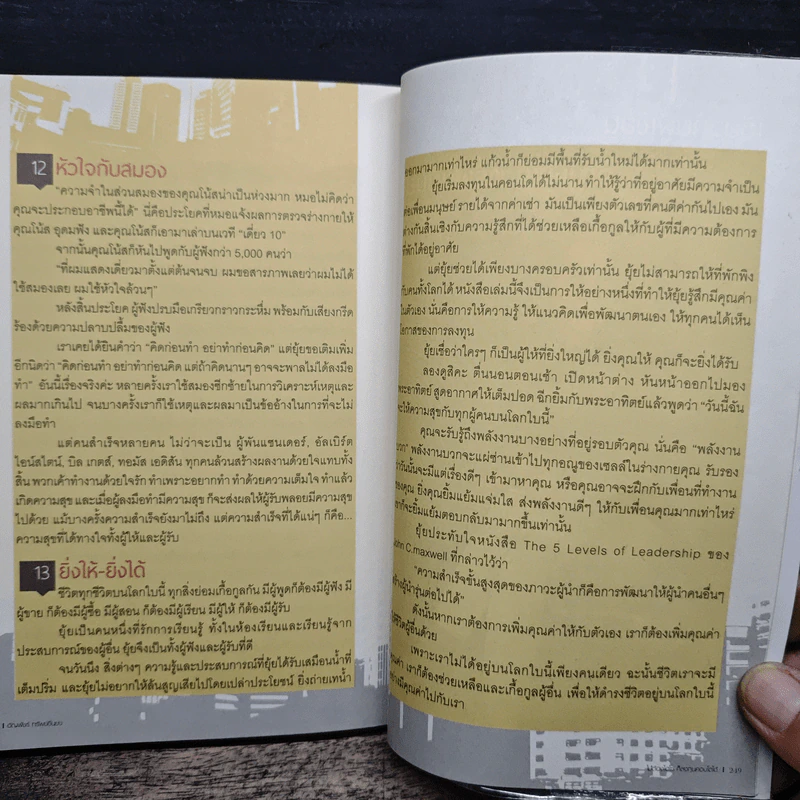 12 หัวใจกับสมอง
"ความจำในส่วนสมองของคุณโน้สน่าเป็นห่วงมาก หมอไม่คิดว่า
คุณจะประกอบอาชีพนี้ได้" นี่คือประโยคที่หมอแจ้งผลการตรวจร่างกายให้
คุณโน้ส อุดมฟัง และคุณโน้สก็เอามาเล่าบนเวที "เดี่ยว 10"
จากนั้นคุณโน้สก็หันไปพูดกับผู้ฟังกว่า 5,000 คนว่า
"ที่ผมแสดงเดี่ยวมาตั้งแต่ต้นจนจบ ผมขอสารภาพเลยว่าผมไม่ได้
ใช้สมองเลย ผมใช้หัวใจล้วนๆ"
หลังสิ้นประโยค ผู้ฟังปรบมือเกรียวกราวกระหึ่ม พร้อมกับเสียงกรีด
ร้องด้วยความปลาบปลื้มของผู้ฟัง
เราเคยได้ยินคำว่า "คิดก่อนทำ อย่าทำก่อนคิด" แต่ยุ้ยขอเติมเพิ่ม
อีกนิดว่า "คิดก่อนทำ อย่าทำก่อนคิด แต่ถ้าคิดนานๆ อาจจะพาลไม่ได้ลงมือ
ทำ" อันนี้เรื่องจริงค่ะ หลายครั้งเราใช้สมองซีกซ้ายในการวิเคราะห์เหตุและ
ผลมากเกินไป จนบางครั้งเราก็ใช้เหตุและผลมาเป็นข้ออ้างในการที่จะไม่
ลงมือทำ
แต่คนสำเร็จหลายคน ไม่ว่าจะเป็น ผู้พันแซนเดอร์, อัลเบิร์ต
ไอน์สไตน์, บิล เกตส์, ทอมัส เอดิสัน ทุกคนล้วนสร้างผลงานด้วยใจแทบทั้ง
สิ้น พวกเค้าทำงานด้วยใจรัก ทำเพราะอยากทำ ทำด้วยความเต็มใจ ทำแล้ว
เกิดความสุข และเมื่อผู้ลงมือทำมีความสุข ก็จะส่งผลให้ผู้รับพลอยมีความสุข
ไปด้วย แม้บางครั้งความสำเร็จยังมาไม่ถึง แต่ความสำเร็จที่ได้แน่ๆ ก็คือ...
ความสุขที่ได้ทางใจทั้งผู้ให้และผู้รับ
13 ยิ่งให้-ยิ่งได้
ชีวิตทุกชีวิตบนโลกใบนี้ ทุกสิ่งย่อมเกื้อกูลกัน มีผู้พูดก็ต้องมีผู้ฟัง มี
ผู้ขาย ก็ต้องมีผู้ซื้อ มีผู้สอน ก็ต้องมีผู้เรียน มีผู้ให้ ก็ต้องมีผู้รับ
ยุ้ยเป็นคนหนึ่งที่รักการเรียนรู้ ทั้งในห้องเรียนและเรียนรู้จาก
ประสบการณ์ของผู้อื่น ยุ้ยจึงเป็นทั้งผู้ฟังและผู้รับที่ดี
จนวันนึง สิ่งต่างๆ ความรู้และประสบการณ์ที่ยุ้ยได้รับเสมือนน้ำที่
เต็มปริ่ม และยุ้ยไม่อยากให้ล้นสูญเสียไปโดยเปล่าประโยชน์ ยิ่งถ่ายเทน้ำ
ออกมามากเท่าไหร่ แก้วน้ำก็ย่อมมีพื้นที่รับน้ำใหม่ได้มากเท่านั้น
ยุ้ยเริ่มลงทุนในคอนโดได้ไม่นาน ทำให้รู้ว่าที่อยู่อาศัยมีความจำเป็น
ต่อเพื่อนมนุษย์ รายได้จากค่าเช่า มันเป็นเพียงตัวเลขที่คนตีค่ากันไปเอง มัน
ต่างกันสิ้นเชิงกับความรู้สึกที่ได้ช่วยเหลือเกื้อกูลให้กับผู้ที่มีความต้องการ
ที่พักได้อยู่อาศัย
แต่ยุ้ยช่วยได้เพียงบางครอบครัวเท่านั้น ยุ้ยไม่สามารถให้ที่พักพิง
กับคนทั้งโลกได้ หนังสือเล่มนี้จึงเป็นการให้อย่างหนึ่งที่ทำให้ยุ้ยรู้สึกมีคุณค่า
ในตัวเอง นั่นคือการให้ความรู้ ให้แนวคิดเพื่อพัฒนาตนเอง ให้ทุกคนได้เห็น
โอกาสของการลงทุน
ยุ้ยเชื่อว่าใครๆ ก็เป็นผู้ให้ที่ยิ่งใหญ่ได้ ยิ่งคุณให้ คุณก็จะยิ่งได้รับ
ลองดูสิคะ ตื่นนอนตอนเช้า เปิดหน้าต่าง หันหน้าออกไปมอง
พระอาทิตย์ สูดอากาศให้เต็มปอด ฉีกยิ้มกับพระอาทิตย์แล้วพูดว่า "วันนี้ฉัน
จะให้ความสุขกับทุกผู้คนบนโลกใบนี้"
คุณจะรับรู้ถึงพลังงานบางอย่างที่อยู่รอบตัวคุณ นั่นคือ "พลังงาน
บวก" พลังงานบวกจะแผ่ซ่านเข้าไปทุกอณูของเซลล์ในร่างกายคุณ รับรอง
ว่าวันนั้นจะมีแต่เรื่องดีๆ เข้ามาหาคุณ หรือคุณอาจจะฝึกกับเพื่อนที่ทำงาน
ของคุณ ยิ่งคุณยิ้มแย้มแจ่มใส ส่งพลังงานดีๆ ให้กับเพื่อนคุณมากเท่าไหร่
เขาก็จะยิ้มแย้มตอบกลับมามากขึ้นเท่านั้น
ยุ้ยประทับใจหนังสือ The 5 Levels of Leadership ของ
John C.maxwell ที่กล่าวไว้ว่า
"ความสำเร็จขั้นสูงสุดของภาวะผู้นำก็คือการพัฒนาให้ผู้นำคนอื่นๆ
สร้างผู้นำรุ่นต่อไปได้"
ดังนั้นหากเราต้องการเพิ่มคุณค่าให้กับตัวเอง เราก็ต้องเพิ่มคุณค่า
ให้ชีวิตผู้อื่นด้วย
เพราะเราไม่ได้อยู่บนโลกใบนี้เพียงคนเดียว ฉะนั้นชีวิตเราจะมี
คุณค่า เราก็ต้องช่วยเหลือและเกื้อกูลผู้อื่น เพื่อให้ดำรงชีวิตอยู่บนโลกใบนี้
อย่างมีคุณค่าไปกับเรา
249